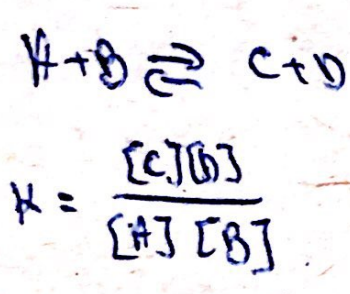 A+B ⇌ C+D
K = [C][D] / [A] [B]